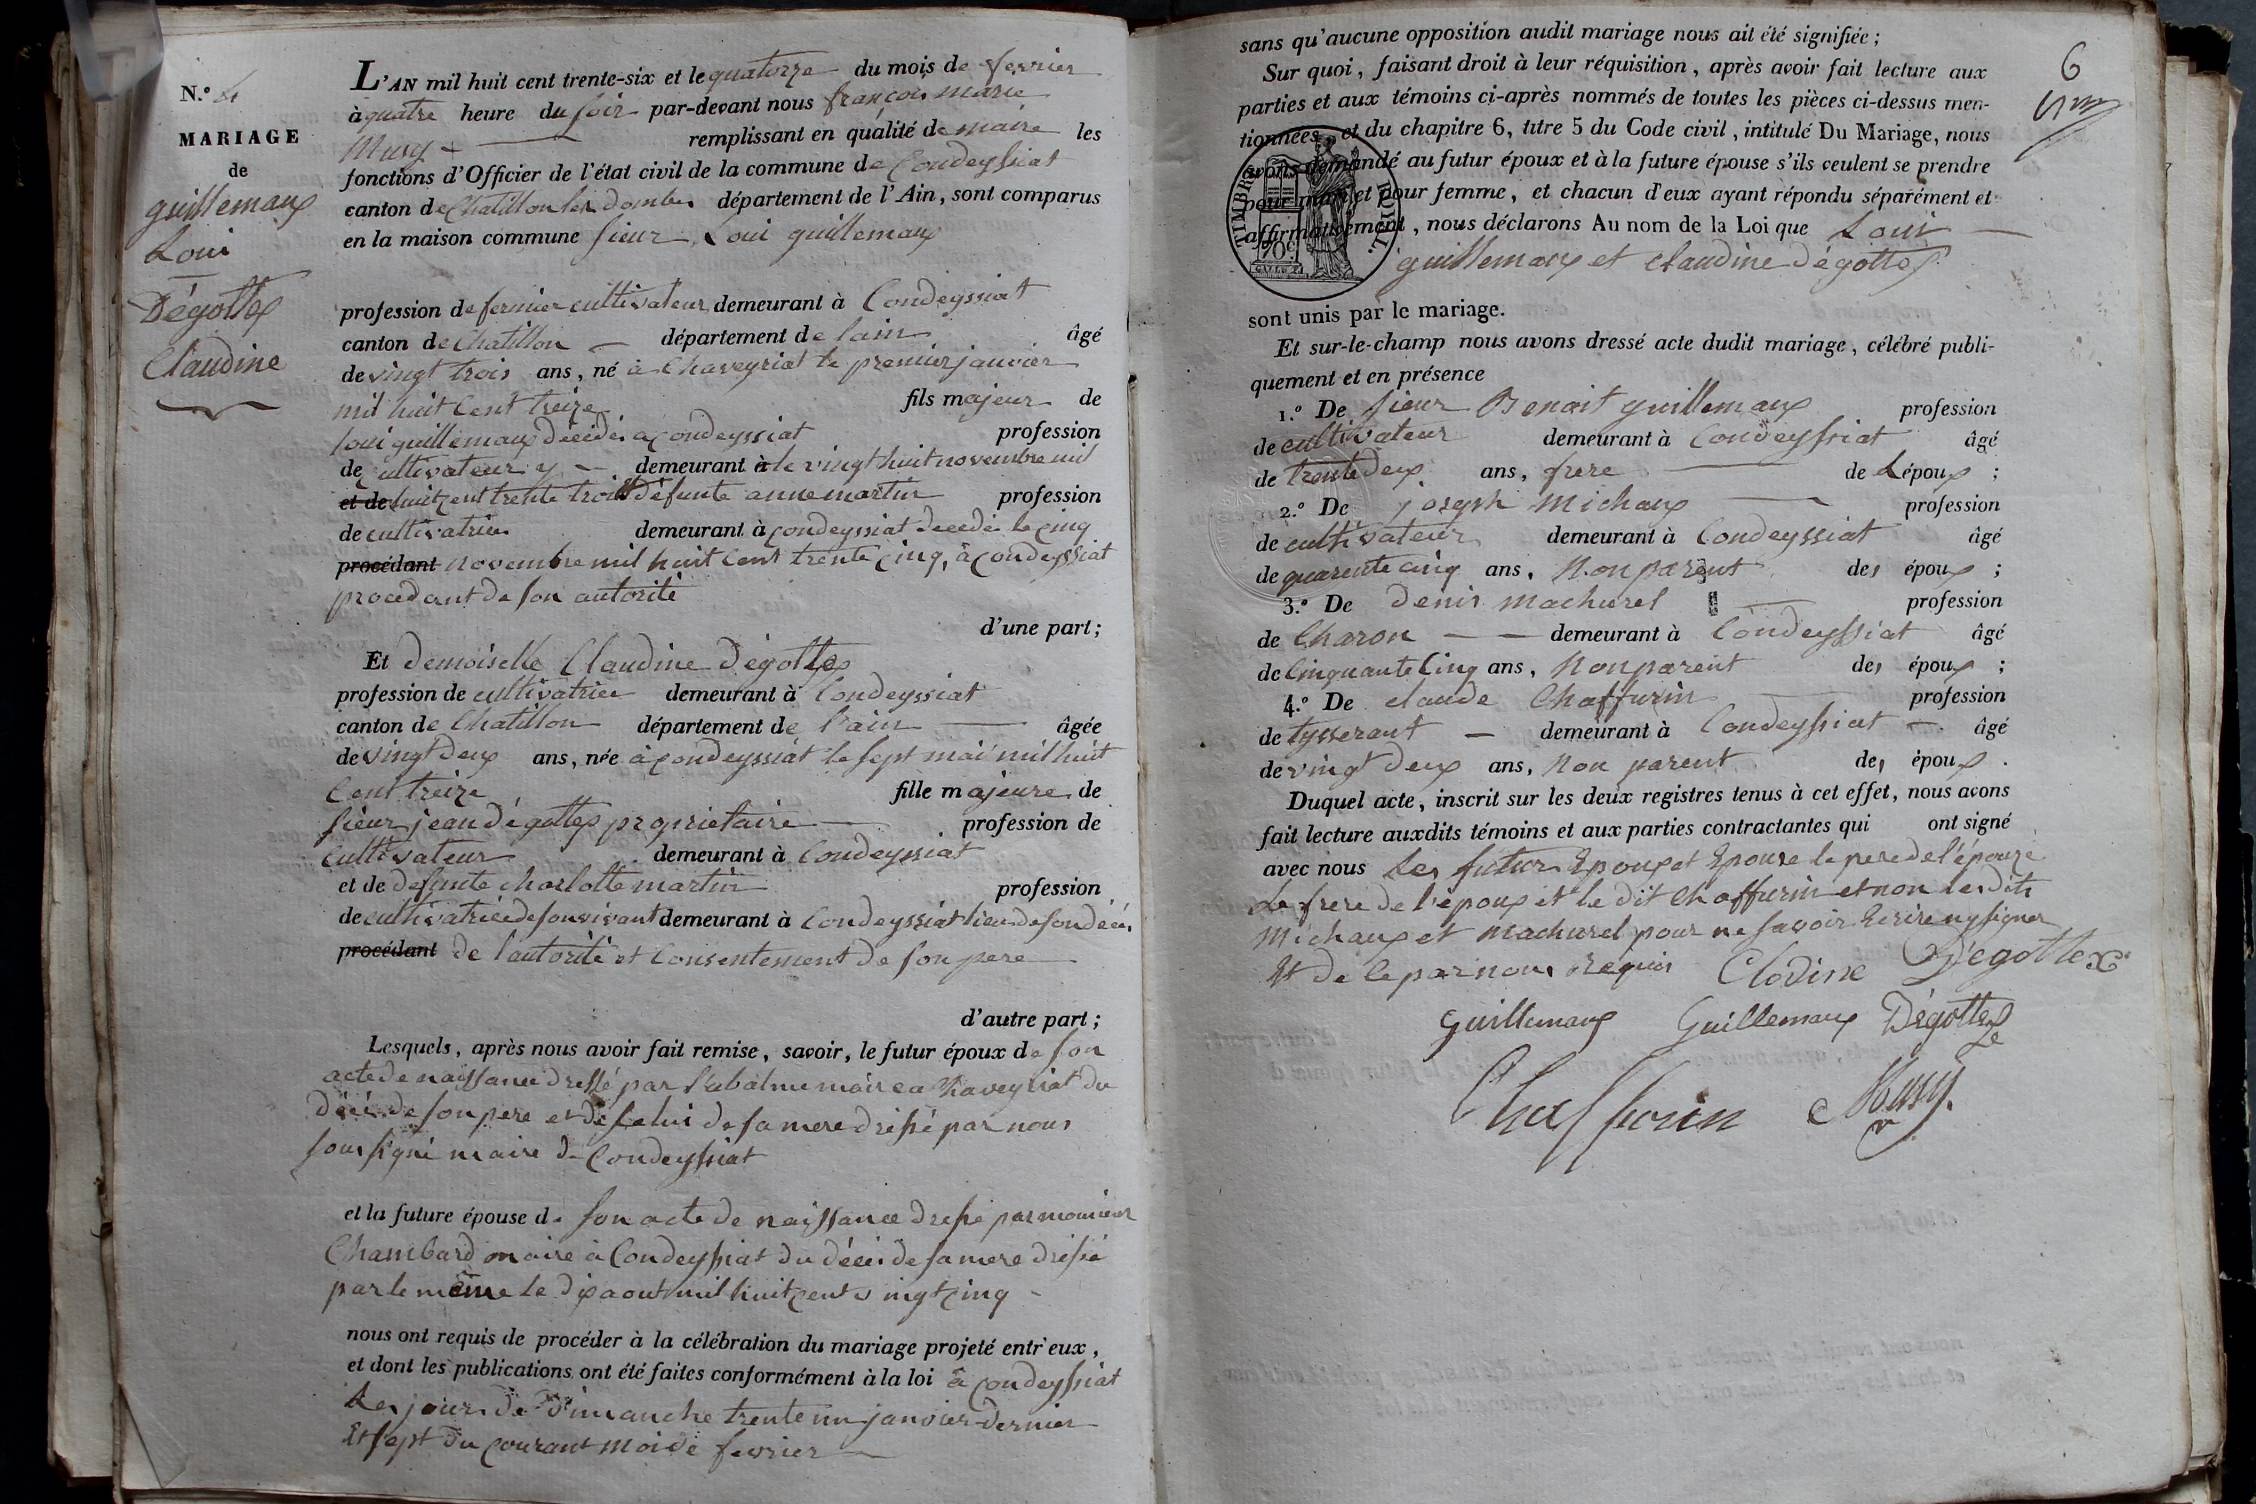 N.° 4
MARIAGE
de
guillemaux
Loui
Dégottex
Claudine
L'AN mil huit cent trente-six et le quatorze du mois de fevrier
à quatre heure du soir par-devant nous françois marie
Musy remplissant en qualité de maire les
fonctions d'Officier de l'état civil de la commune de Condeyssiat
canton de Chatillon les Dombes département de l'Ain, sont comparus
en la maison commune sieur Loui guillemaux
profession de fermier cultivateur demeurant à Condeyssiat
canton de Chatillon département de lain âgé
de vingt trois ans, né à Chaveyriat le premier janvier
mil huit Cent treize fils majeur de
loui guillemaux décédé a condeyssiat profession
de cultivateur y demeurant à le vingt huit novembre mil
et de huit cent trente trois défunte anne martin profession
de cultivatrice demeurant à condeyssiat decedée le cinq
procédant novembre mil huit Cent trente cinq, à condeyssiat
procedant de son autorité
d'une part;
Et demoiselle Claudine Dégottex
profession de cultivatrice demeurant à Condeyssiat
canton de Chatillon département de l'ain âgée
de vingt deux ans, née à condeyssiat le sept mai mil huit
Cent treize fille majeure de
sieur jean dégottex proprietaire profession de
cultivateur demeurant à Condeyssiat
et de defunte charlotte martin profession
de cultivatrice de son vivant demeurant à Condeyssiat lieu de son décès
procédant de l'autorité et Consentement de son pere
d'autre part;
Lesquels, après nous avoir fait remise, savoir, le futur époux de son
acte de naissance dressé par maire a Chaveyriat du
décès de son pere et de Celui de sa mere dressé par nous
soussigné maire de Condeyssiat
et la future épouse de son acte de naissance dressé par monsieur
Chambard maire à Condeyssiat du décès de sa mere dressé
par le même le dix aout mil huit cent vingt cinq
nous ont requis de procéder à la célébration du mariage projeté entr'eux,
et dont les publications ont été faites conformément à la loi à condeyssiat
Les jours de dimanche trente un janvier dernier
Et sept du courant mois de fevrier
6
sans qu'aucune opposition audit mariage nous ait été signifiée;
Sur quoi, faisant droit à leur réquisition, après avoir fait lecture aux
parties et aux témoins ci-après nommés de toutes les pièces ci-dessus men-
tionnées, et du chapitre 6, titre 5 du Code civil, intitulé Du Mariage, nous
avons demandé au futur époux et à la future épouse s'ils veulent se prendre
pour mari et pour femme, et chacun d'eux ayant répondu séparément et
affirmativement, nous déclarons Au nom de la Loi que Loui
guillemaux et claudine dégottex
TIMBRE ROYAL.
70c
sont unis par le mariage.
Et sur-le-champ nous avons dressé acte dudit mariage, célébré publi-
quement et en présence
1.° De sieur Benoit guillemaux profession
de cultivateur demeurant à Condeyssiat âgé
de trente deux ans, frere de L époux ;
2.° De joseph michaux profession
de cultivateur demeurant à Condeyssiat âgé
de quarente cinq ans, Non parent des époux ;
3.° De denis machurel profession
de Charon demeurant à Condeyssiat âgé
de Cinquante Cinq ans, Non parent des époux ;
4.° De claude Chaffurin profession
de tysserant demeurant à Condeyssiat âgé
de vingt deux ans, Non parent des époux .
Duquel acte, inscrit sur les deux registres tenus à cet effet, nous avons
fait lecture auxdits témoins et aux parties contractantes qui ont signé
avec nous Les futurs Epoux et Epouse le pere de l'épouze
Le frere de l'époux et le dit Chaffurin et non les dits
Michaux et machurel pour ne savoir Ecrire ny signer
Et de Ce par nous Requis Clodine Dégottex
Guillemaux Guillemaux Dégottex
Chaffurin Musy